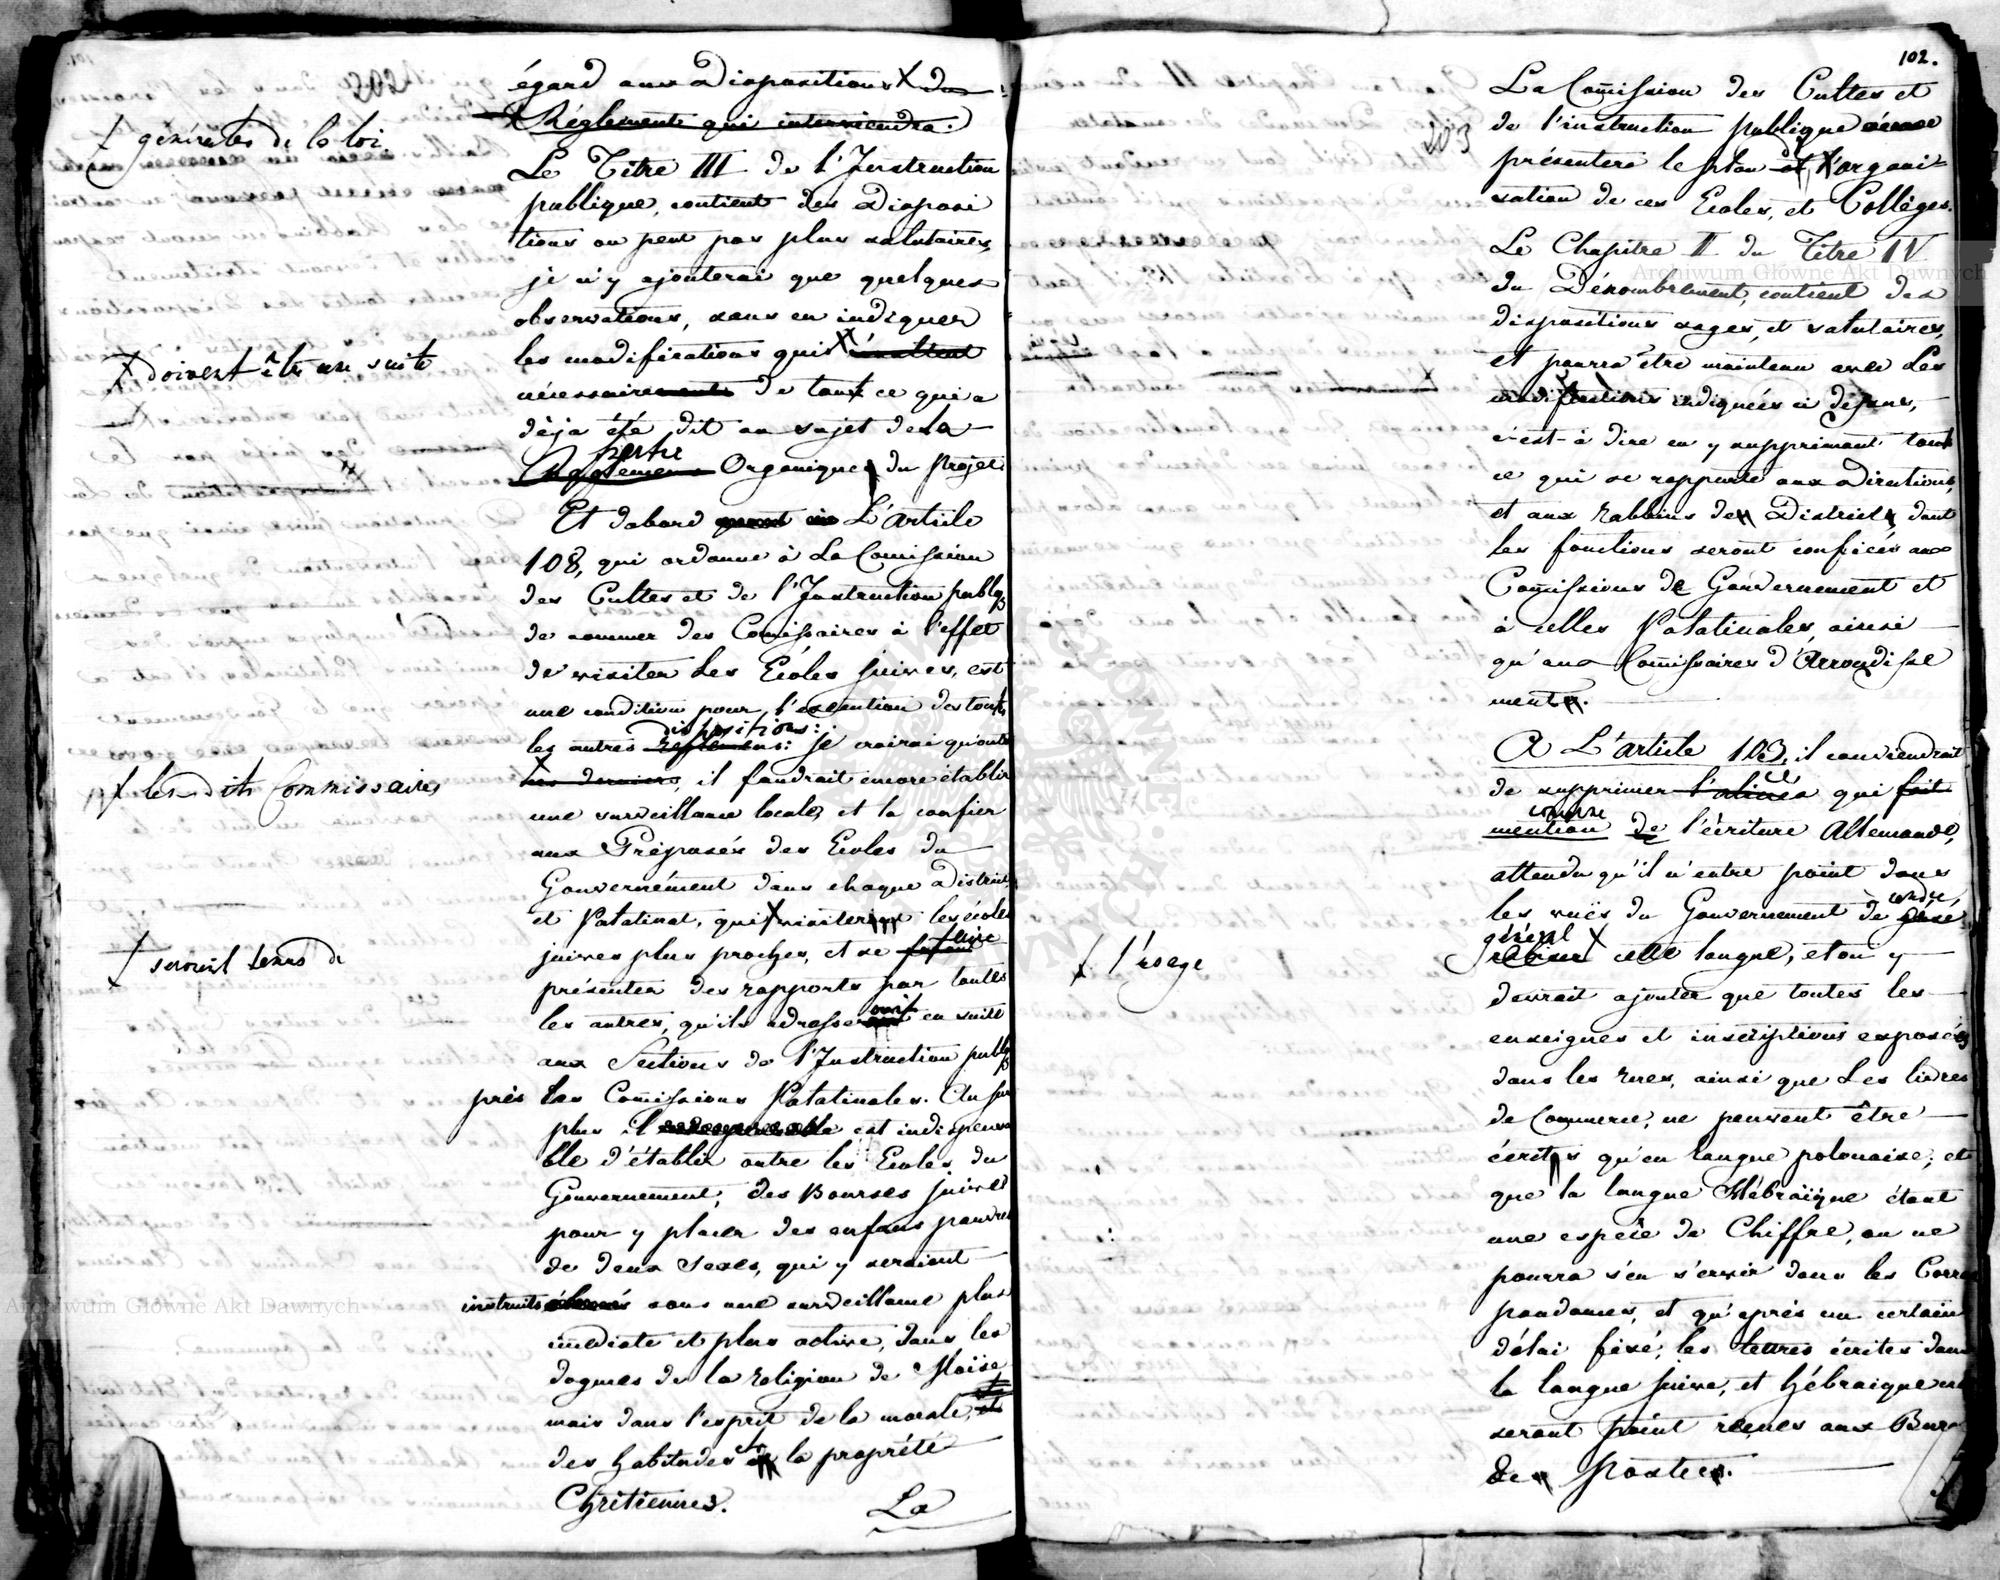 égard aux Dispositions X du
Réglement qui interviendra.
X générales de la loi.
Le Titre III de l'Instruction
publique, contient des Disposi
tions on peut pas plus salutaires,
je n'y ajouterai que quelques
observations, sans en indiquer
les modifications qui X résultent
X doivent être une suite
nécessairement de tout ce qui a
déja été dit au sujet de la
partie
Règlement Organique du Projet
Et dabord quant au L'article
108, qui ordonne à La Comission
des Cultes et de l'Instruction publq
de nommer des Comissaires à l'effet
de visiter les Écoles juives, est
une condition pour l'exécution de toutes
dispositions:
les autres reglemens: je croirai qu'outre
X les derniers, il faudrait encore établir
X lesdits Commissaires
une surveillance locale, et la confier
aux Préposés des Ecoles du
Gouvernément dans chaque District
et Palatinat, qui X visiter les écoles
X seroient tenus de
juives plus proches, et se faire
présenter des rapports par toutes
les autres, qu'ils adresseroient en suite
aux Sections de l'Instruction publq
près les Comissions Palatinales. Au sur
plus il est indispensa
ble d'établir outre les Ecoles du
Gouvernement, des Bourses juives
pour y placer des enfans pauvres
de deux Sexes, qui y seroient
instruits élevés sous une surveillance plus
imédiate et plus active, dans les
dogmes de la religion de Moïse
mais dans l'esprit de la morale, et
des habitudes et la propriété
Chrétiennes.
La
102.
203
La Comission des Cultes et
de l'instruction publique
présentera le plan d'organi-
sation de ces Ecoles, et Collèges.
Le Chapitre II du Titre IV
du Dénombrement, contient des
dispositions sages, et salutaires,
et pourra être maintenu avec les
modifications indiquées ci dessus,
c'est-à dire en y supprimant tout
ce qui se rapporte aux Directions,
et aux rabbins de District dont
les fonctions seront confiées aux
Comissions de Gouvernement et
à celles Palatinales, ainsi
qu'aux Comissaires d'Arrondisse
ment.
A L'article 103, il conviendrait
de supprimer l'alinéa qui fait
comme
mention de l'écriture Allemande,
attendu qu'il n'entre point dans
les vuës du Gouvernement de rendre
général X cette langue, et on y
X l'usage
devrait ajouter que toutes les
enseignes et inscriptions exposées
dans les rues, ainsi que les livres
de Commerce, ne peuvent être
écrits qu'en langue polonaise, et
que la langue Hébraïque étant
une espèce de Chiffre, on ne
pourra s'en servir dans les Corres
pondances, et qu'après un certain
délai fixé, les lettres écrites dans
la langue Juive, et hébraique ne
seront point reçues aux Bureaux
de Postes.
Archiwum Główne Akt Dawnych
Archiwum Główne Akt Dawnych